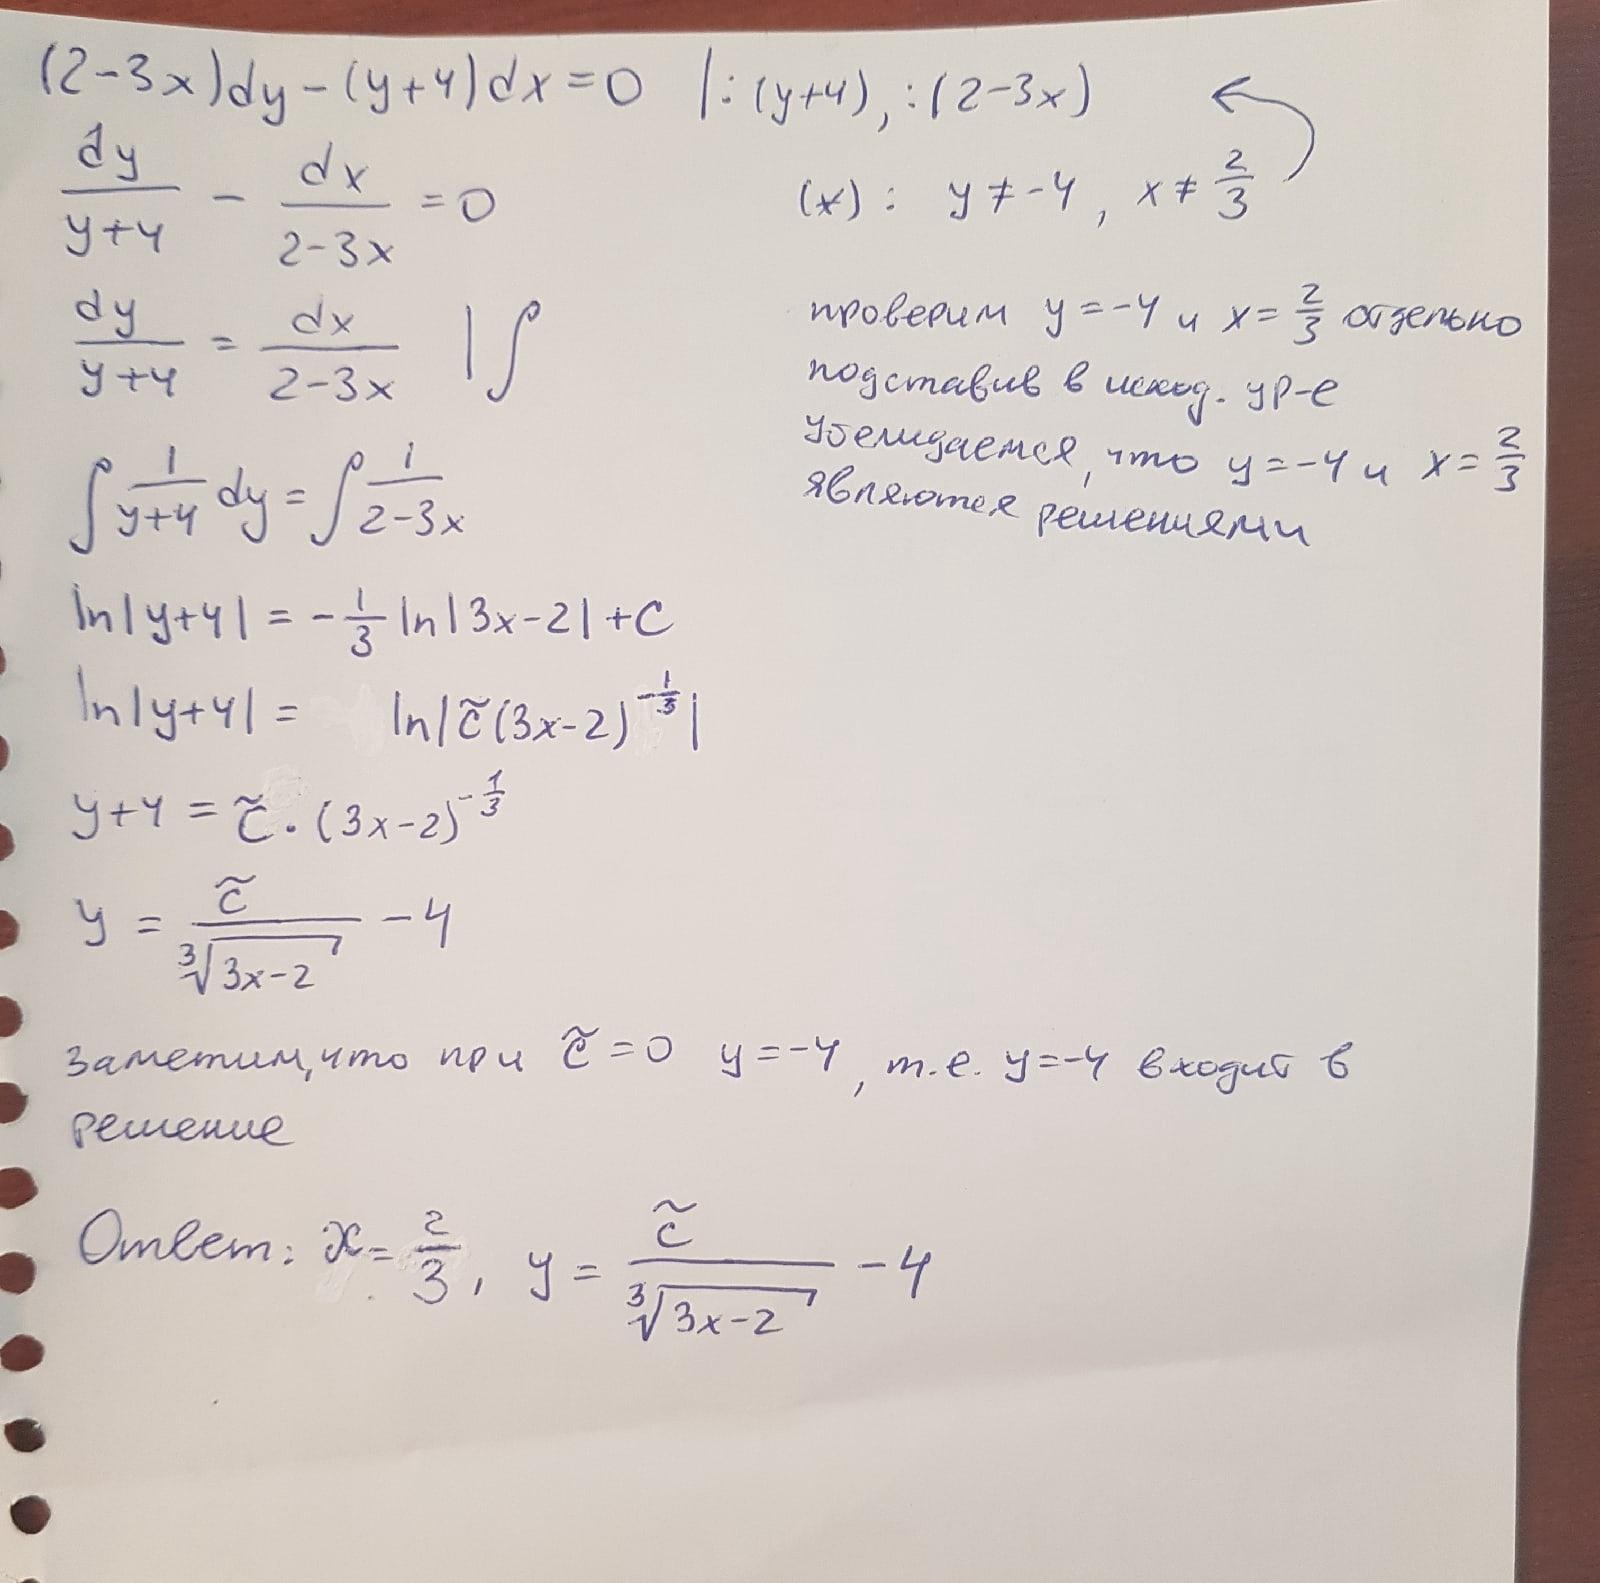 (2-3x)dy-(y+4)dx=0 |:(y+4),:(2-3x)
dy/(y+4) - dx/(2-3x) = 0
(x): y≠-4, x≠2/3
dy/(y+4) = dx/(2-3x) |∫
проверим y=-4 и x=2/3 отдельно
подставив в исход. ур-е
убеждаемся, что y=-4 и x=2/3
являются решениями
∫1/(y+4) dy = ∫1/(2-3x)
ln|y+4| = -1/3 ln|3x-2|+C
ln|y+4| = ln|c̃(3x-2)^(-1/3)|
y+4 = c̃·(3x-2)^(-1/3)
y = c̃/∛(3x-2) -4
Заметим, что при c̃=0 y=-4, т.е. y=-4 входит в
решение
Ответ: x=2/3, y = c̃/∛(3x-2) -4